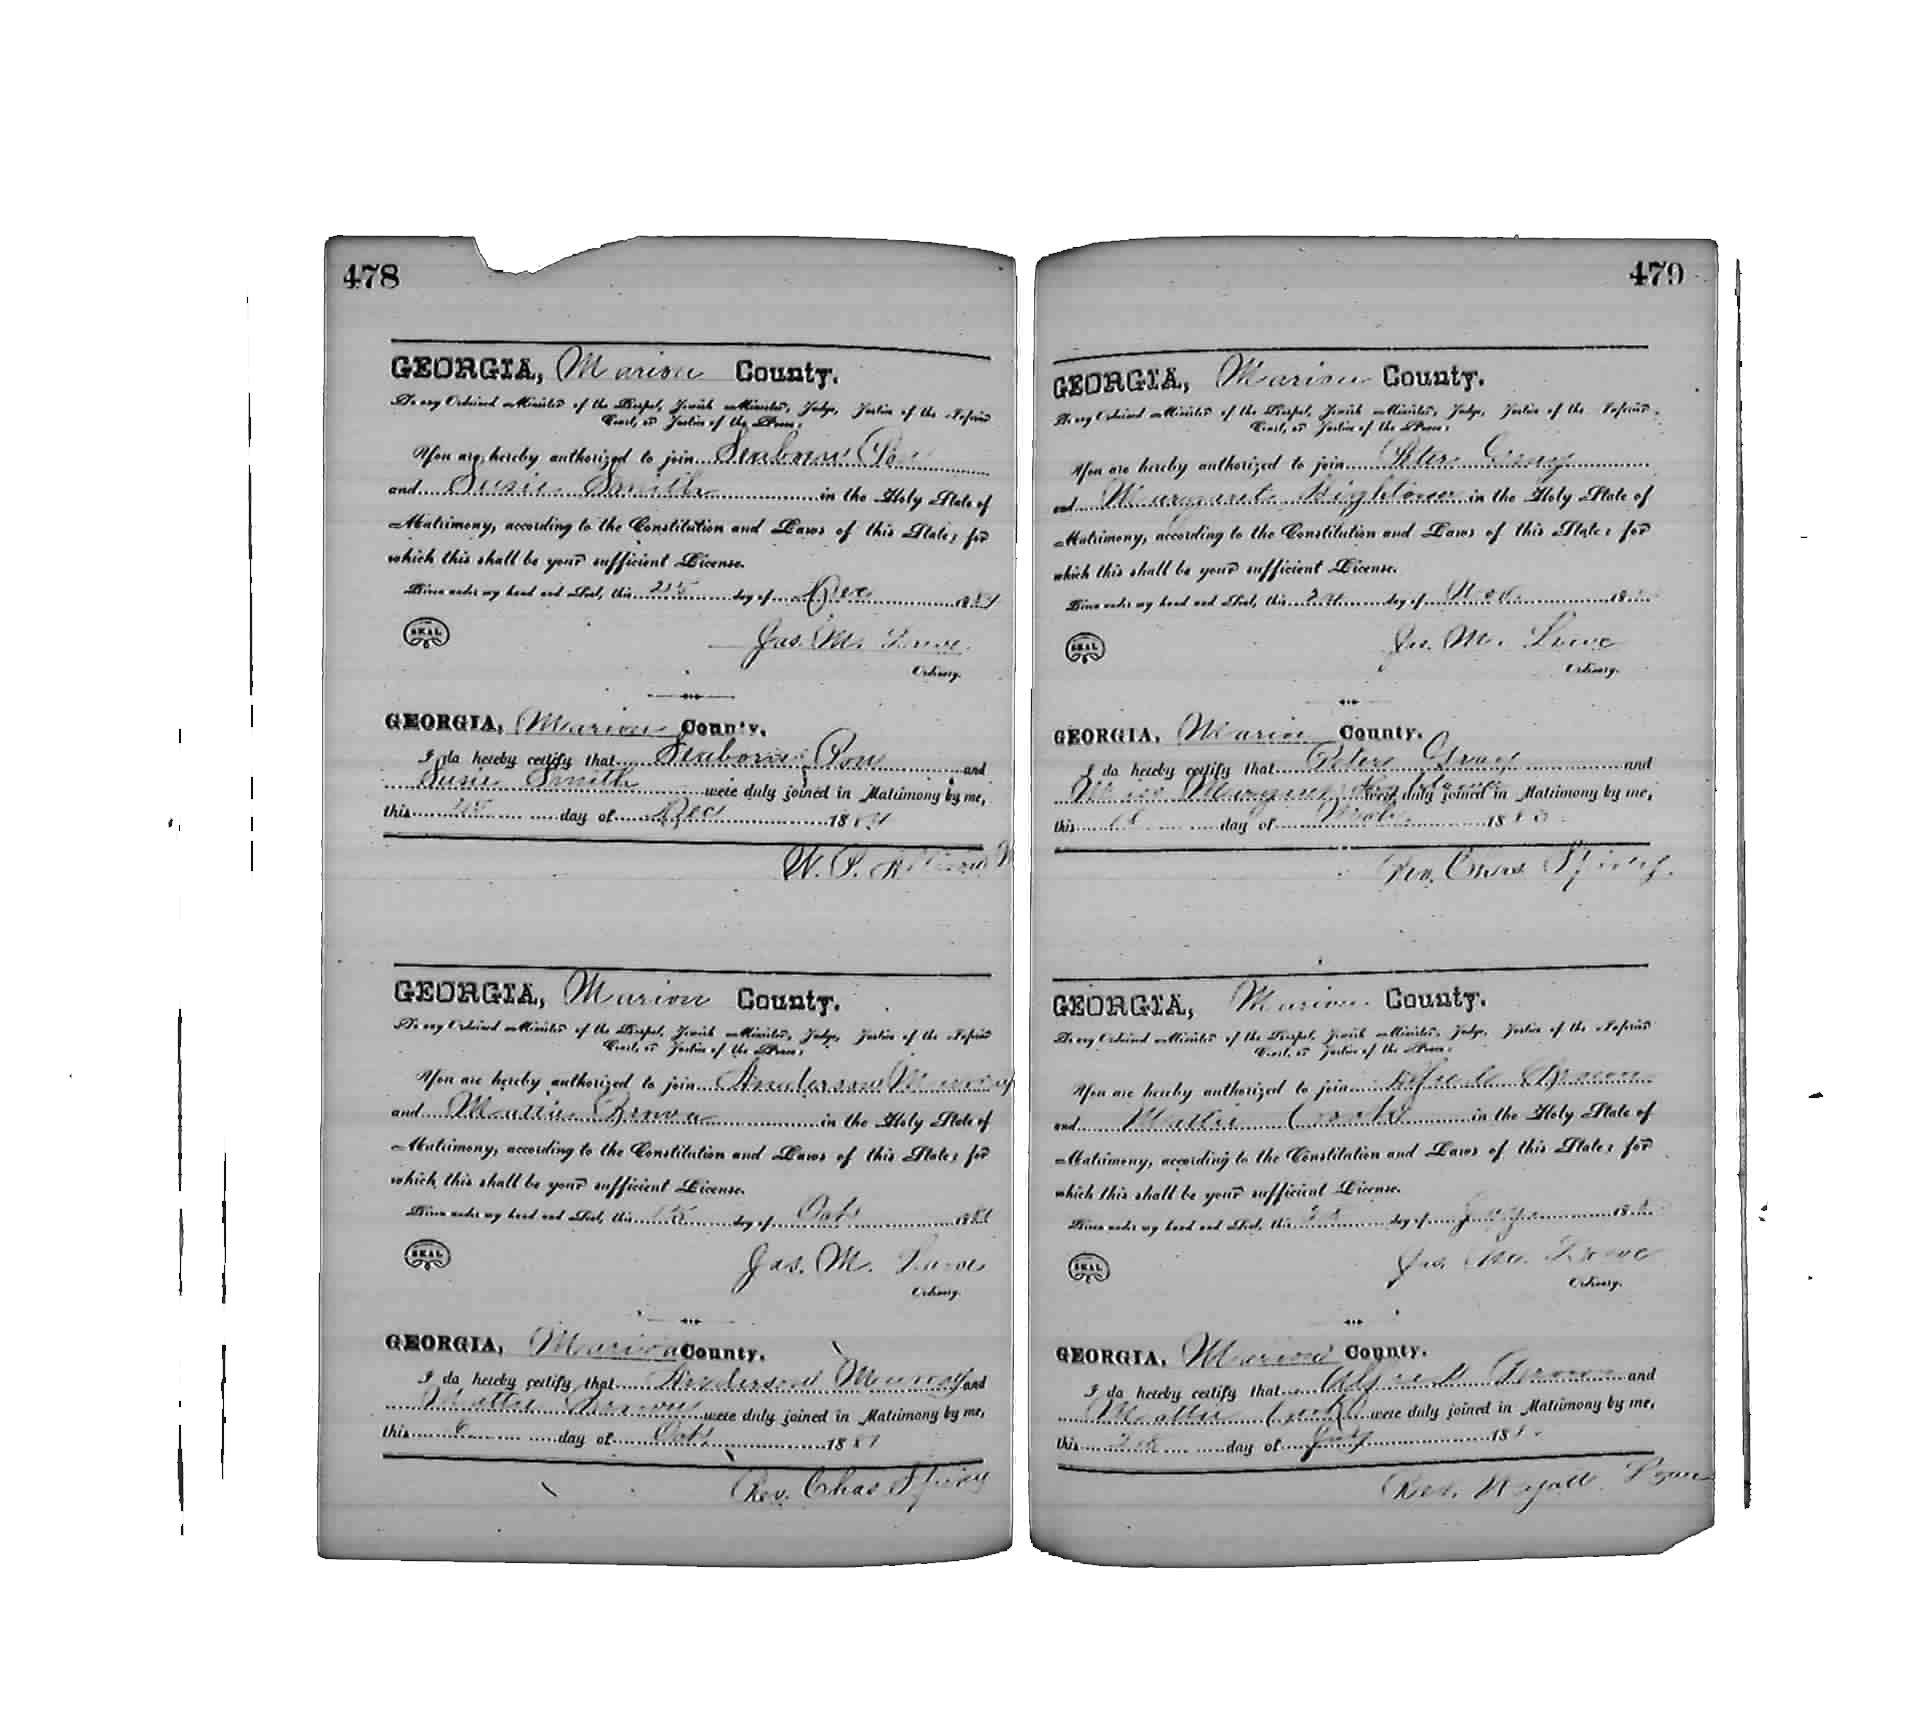 478
GEORGIA, Marion County.
To any Ordained Minister of the Gospel, Jewish Minister, Judge, Justice of the Inferior
Court, or Justice of the Peace:
You are hereby authorized to join Seaborn Pou
and Susie Smith in the Holy State of
Matrimony, according to the Constitution and Laws of this State; for
which this shall be your sufficient License.
Given under my hand and Seal, this day of Dec 1881
SEAL
Jas. M. Lowe
Ordinary.
GEORGIA, Marion County.
I do hereby certify that Seaborn Pou and
Susie Smith were duly joined in Matrimony by me,
this day of Dec 1881
W. P.
GEORGIA, Marion County.
To any Ordained Minister of the Gospel, Jewish Minister, Judge, Justice of the Inferior
Court, or Justice of the Peace:
You are hereby authorized to join Anderson
and Mattie Brown in the Holy State of
Matrimony, according to the Constitution and Laws of this State; for
which this shall be your sufficient License.
Given under my hand and Seal, this day of Oct 1881
SEAL
Jas. M. Lowe
Ordinary.
GEORGIA, Marion County.
I do hereby certify that Anderson and
Mattie Brown were duly joined in Matrimony by me,
this 6 day of Oct 1881
Rev. Chas Spivey
479
GEORGIA, Marion County.
To any Ordained Minister of the Gospel, Jewish Minister, Judge, Justice of the Inferior
Court, or Justice of the Peace:
You are hereby authorized to join Peter Gray
and Margaret Hightower in the Holy State of
Matrimony, according to the Constitution and Laws of this State; for
which this shall be your sufficient License.
Given under my hand and Seal, this day of 18
SEAL
Jas. M. Lowe
Ordinary.
GEORGIA, Marion County.
I do hereby certify that Peter Gray and
Miss Margaret Hightower were duly joined in Matrimony by me,
this day of 188
Rev. Chas Spivey.
GEORGIA, Marion County.
To any Ordained Minister of the Gospel, Jewish Minister, Judge, Justice of the Inferior
Court, or Justice of the Peace:
You are hereby authorized to join Alfred Brown
and Mattie Cook in the Holy State of
Matrimony, according to the Constitution and Laws of this State; for
which this shall be your sufficient License.
Given under my hand and Seal, this day of 188
SEAL
Jas. M. Lowe
Ordinary.
GEORGIA, Marion County.
I do hereby certify that Alfred Brown and
Mattie Cook were duly joined in Matrimony by me,
this day of 18
Rev. Wyatt